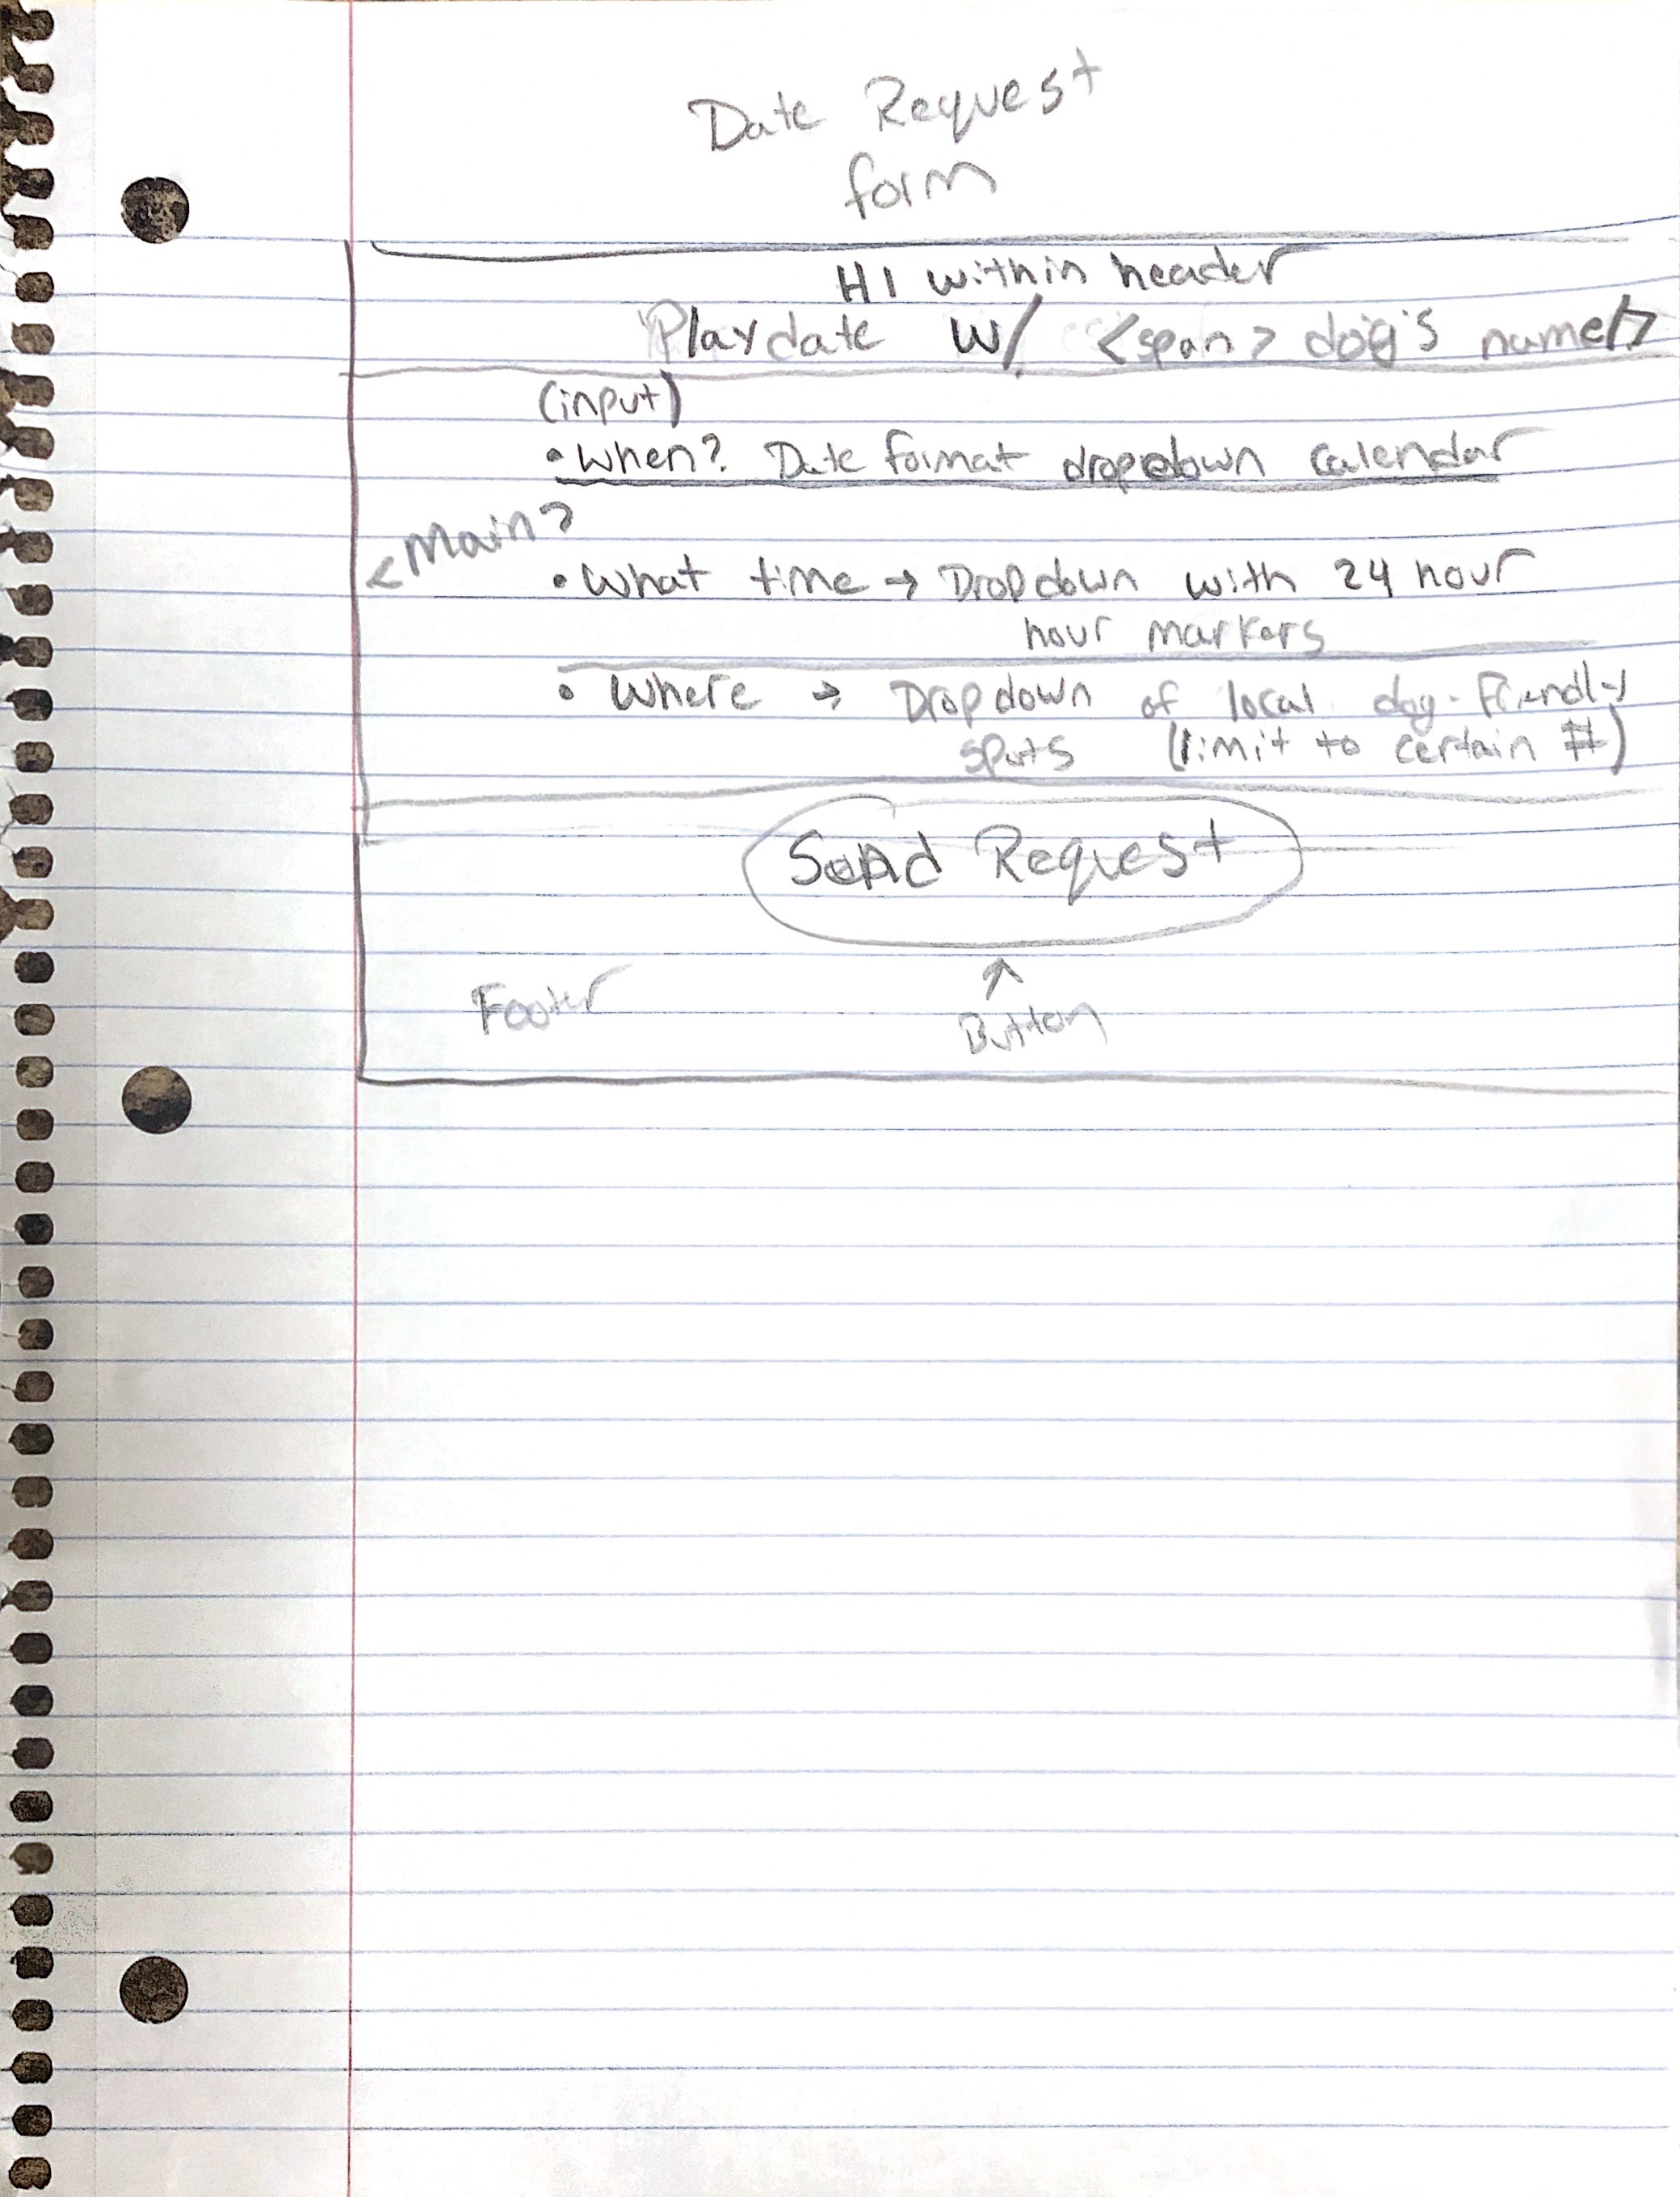 Date Request
form
H1 within header
Playdate w/ <span> dog's name/>
(input)
• When? Date format dropdown calendar
<Main>
• What time → Dropdown with 24 hour
hour markers
• Where → Dropdown of local dog-friendly
spots (limit to certain #)
Send Request
Footer
↑
Button